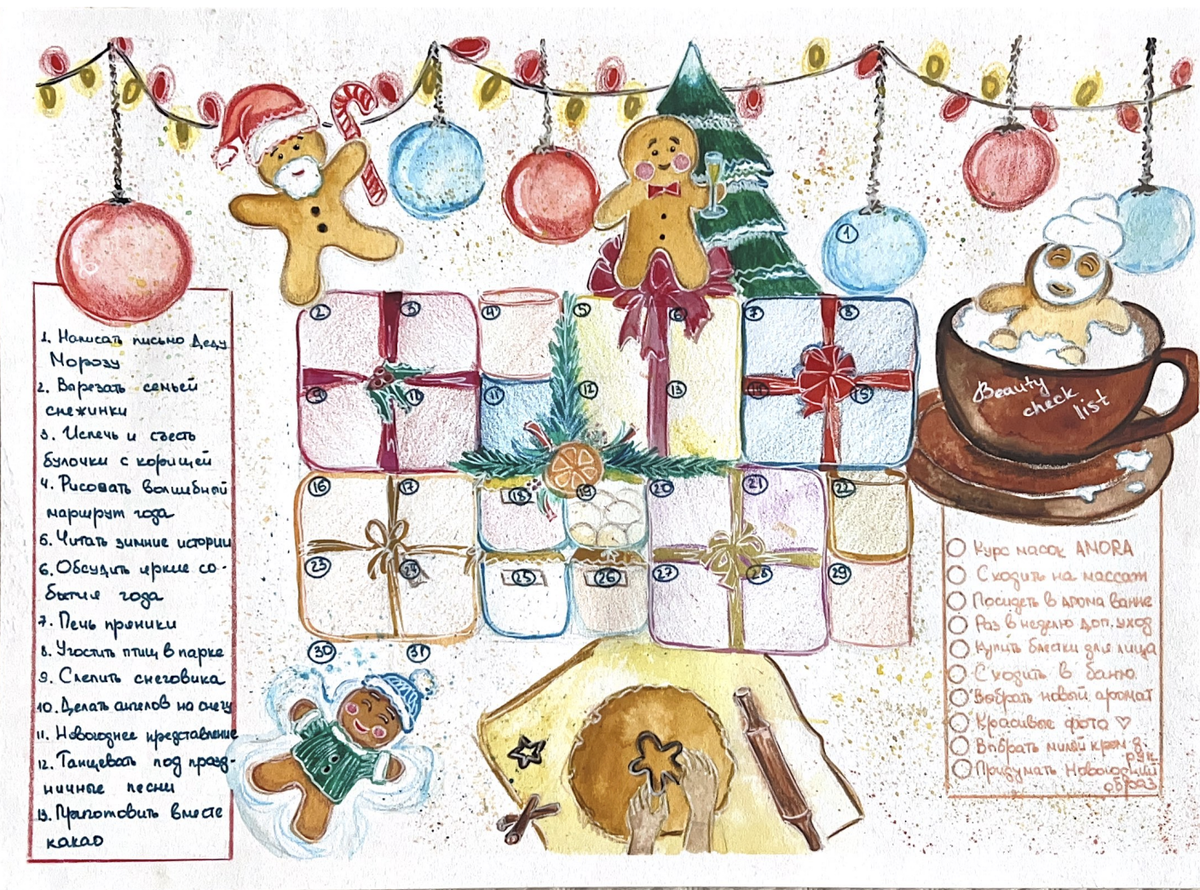 1. Написать письмо Деду
Морозу
2. Вырезать семьёй
снежинки
3. Испечь и съесть
булочки с корицей
4. Рисовать волшебной
маршрут года
5. Читать зимние истории
6. Обсудить яркие со-
бытия года
7. Печь пряники
8. Угостить птиц в парке
9. Слепить снеговика
10. Делать ангелов на снегу
11. Новогоднее представление
12. Танцевать под празд-
ничные песни
13. Приготовить вместе
какао
1
2 3 4 5 6 7 8
9 10 11 12 13 14 15
16 17 18 19 20 21 22
23 24 25 26 27 28 29
30 31
Beauty
check
list
Курс масок ANORA
Сходить на массаж
Посидеть в арома ванне
Раз в неделю доп. уход
Купить блёстки для лица
Сходить в баню
Выбрать новый аромат
Красивые фото ♡
Выбрать милый крем д.
рук
Придумать Новогодний
образ